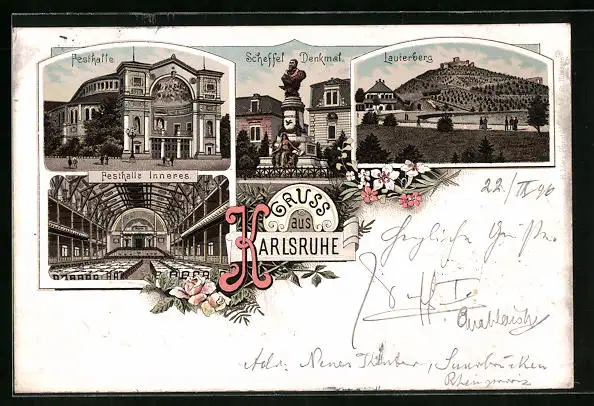 Festhalle
Scheffel Denkmal.
Lauterberg
Festhalle Inneres.
GRUSS
aus
KARLSRUHE
22./IX 96
Herzliche Grüße.
Adr. Neues Theater, Saarbrücken
Rheinprovinz